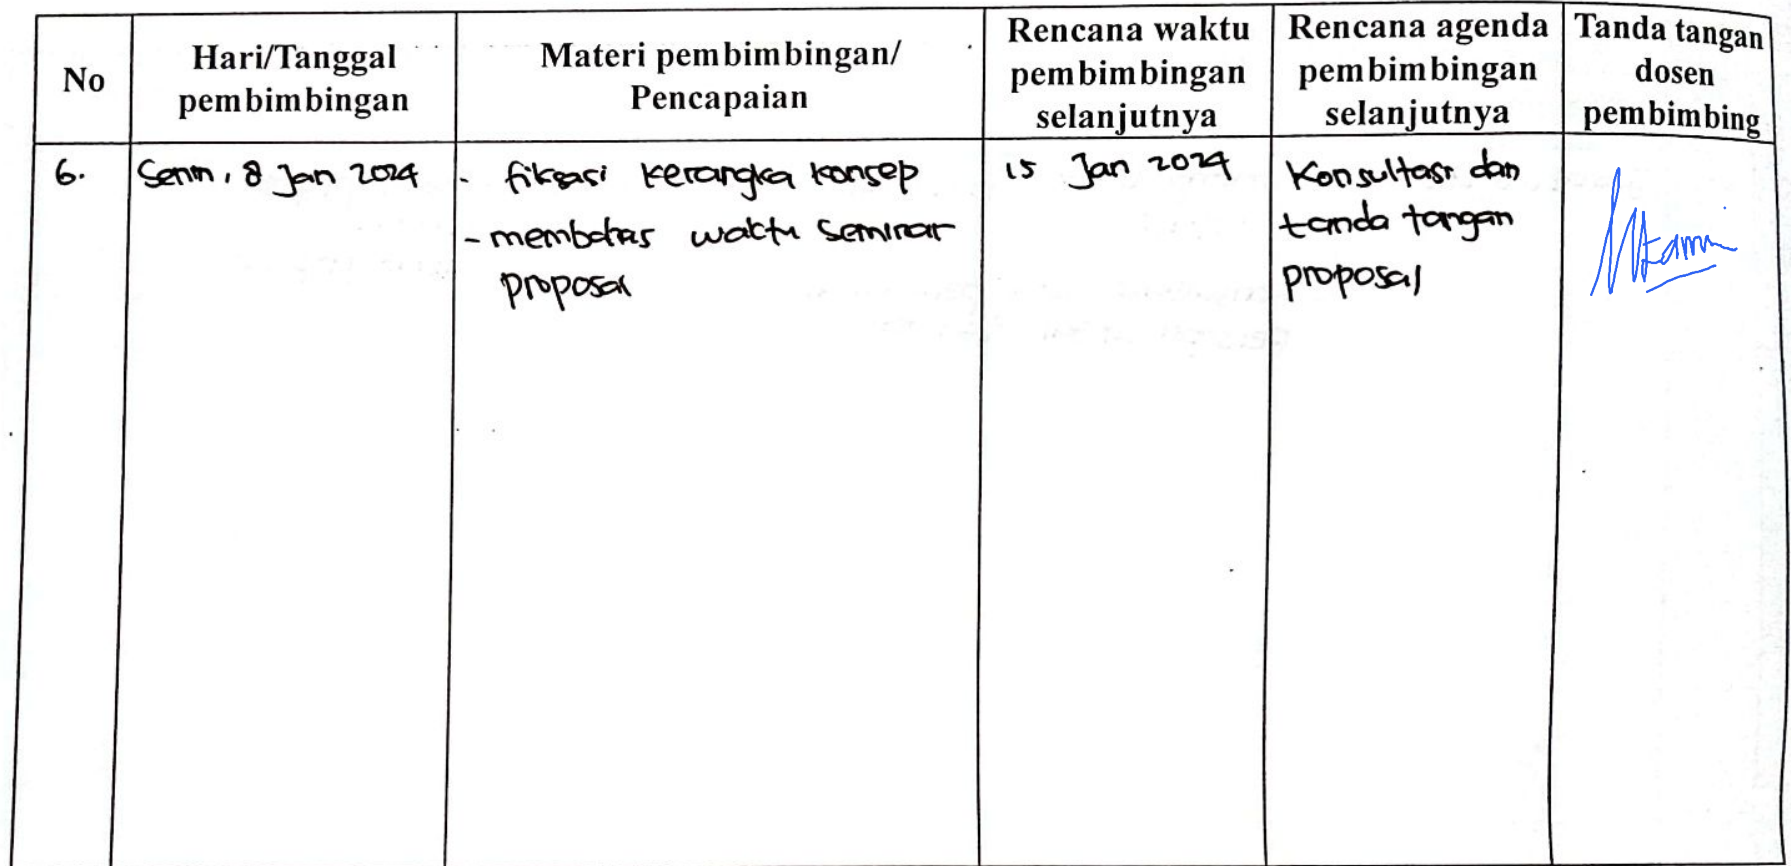 No
Hari/Tanggal
pembimbingan
Materi pembimbingan/
Pencapaian
Rencana waktu
pembimbingan
selanjutnya
Rencana agenda
pembimbingan
selanjutnya
Tanda tangan
dosen
pembimbing
6.
Senin, 8 Jan 2024
- fiksasi kerangka konsep
- membahas waktu seminar
proposal
15 Jan 2024
Konsultasi dan
tanda tangan
proposal